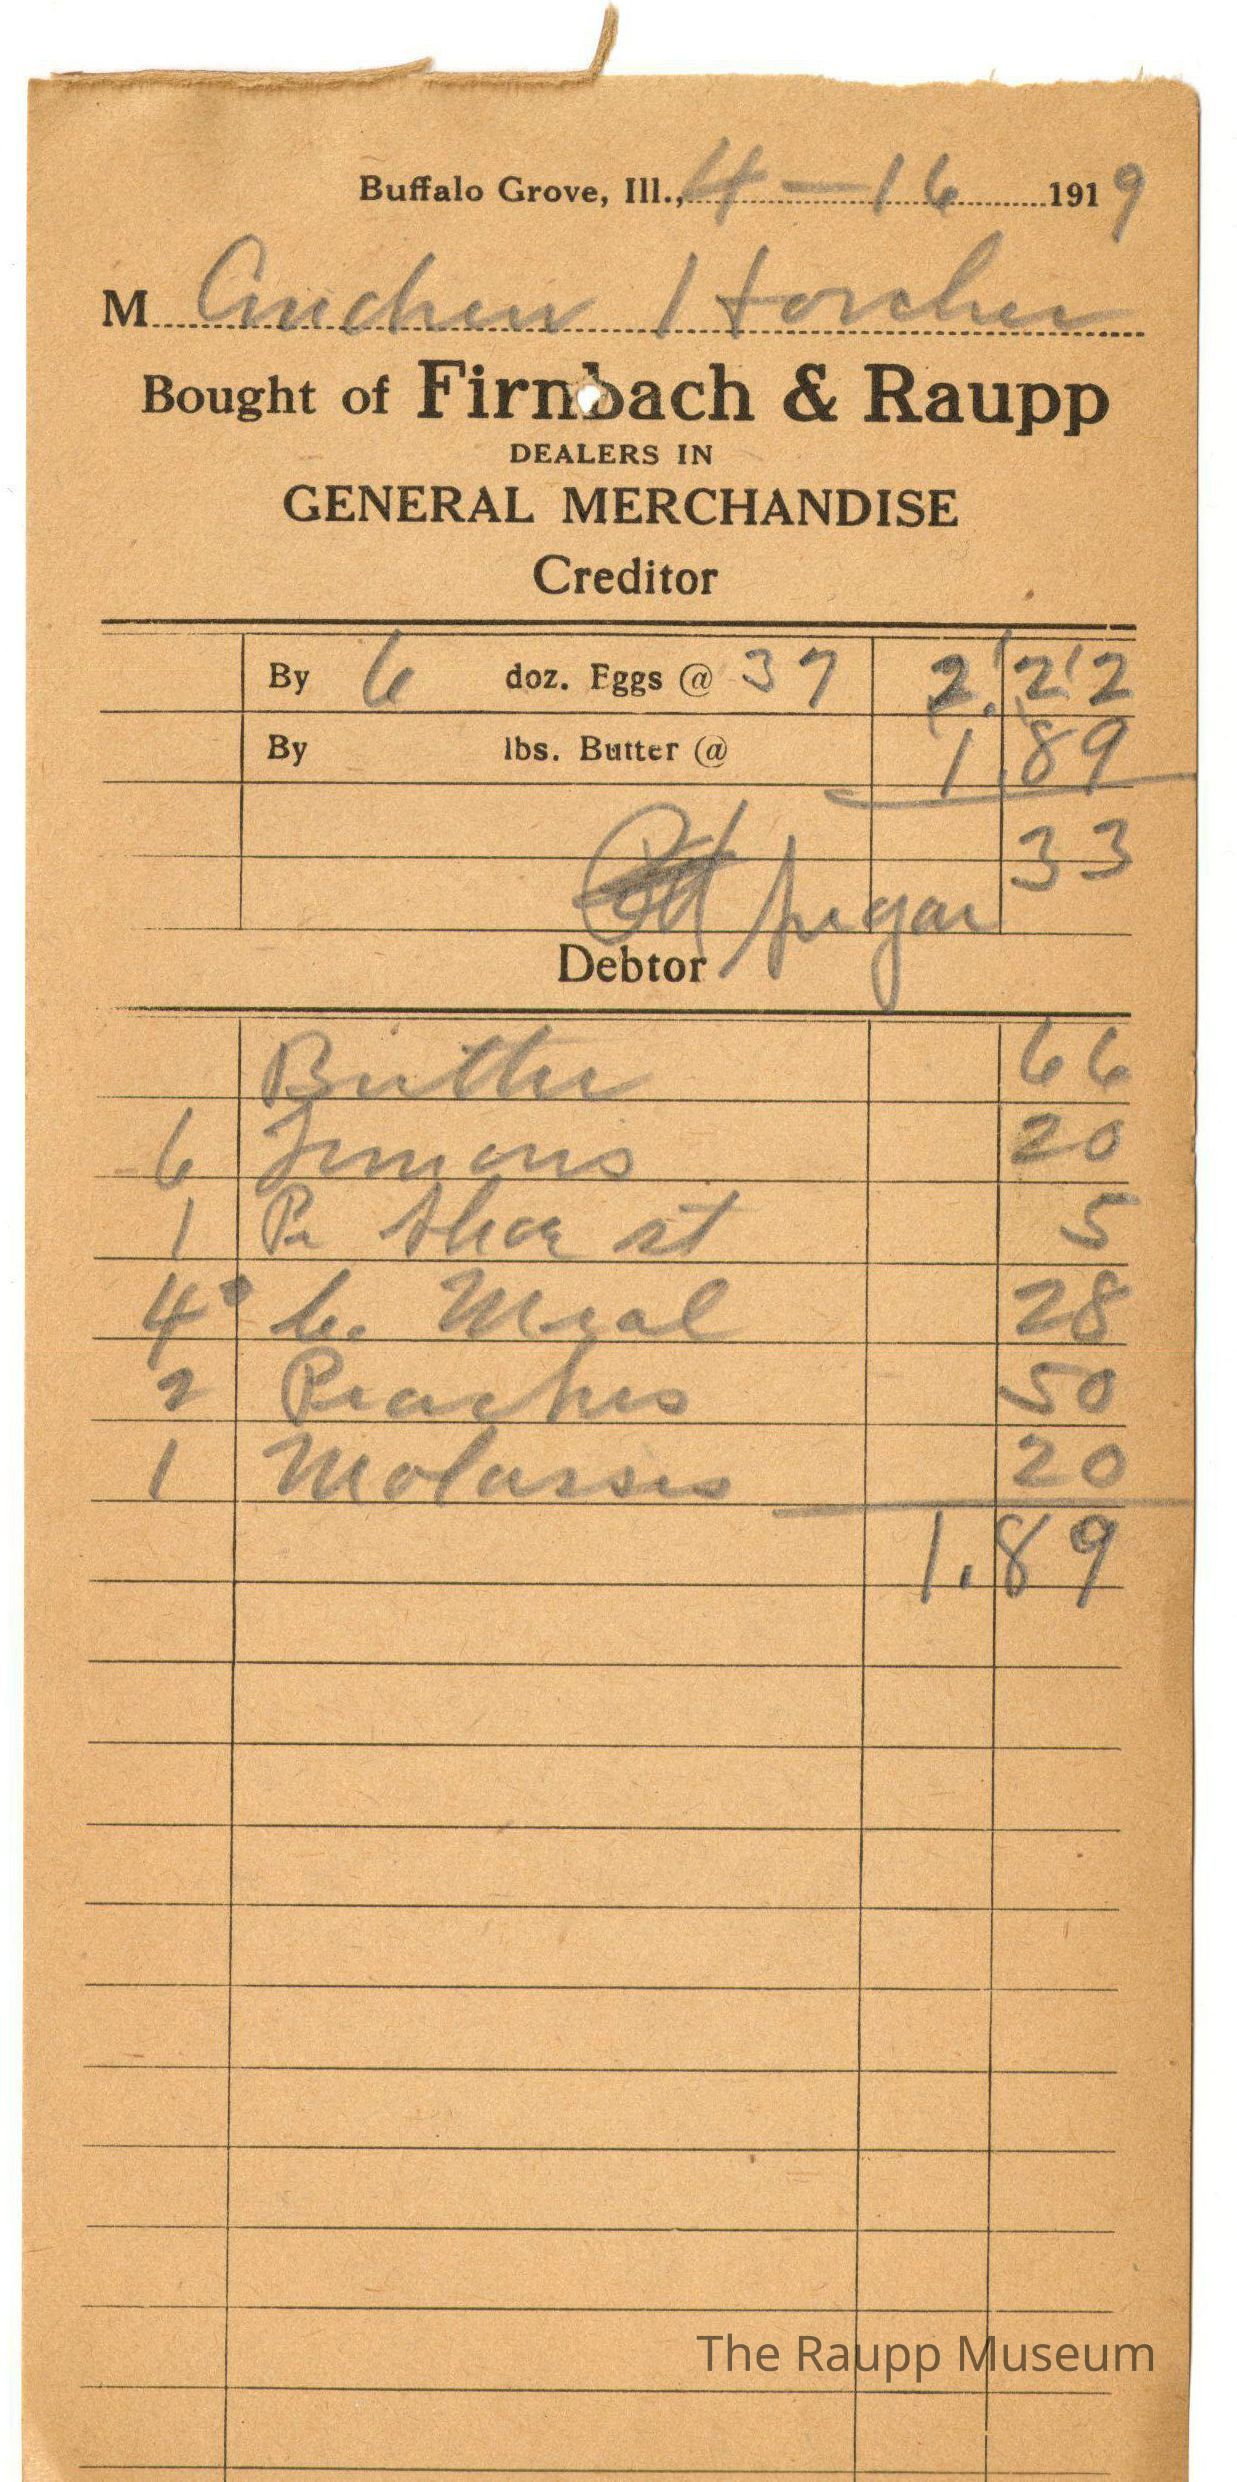 Buffalo Grove, Ill., 4-16 1919
M Andrew Horcher
Bought of Firnbach & Raupp
DEALERS IN
GENERAL MERCHANDISE
Creditor
By 6 doz. Eggs @ 37 2.22
By lbs. Butter @ 1.89
33
sugar
Debtor
Butter 66
6 Lemons 20
1 Pr Shoe st 5
4 C. Meal 28
2 Peaches 50
1 Molasses 20
1.89
The Raupp Museum